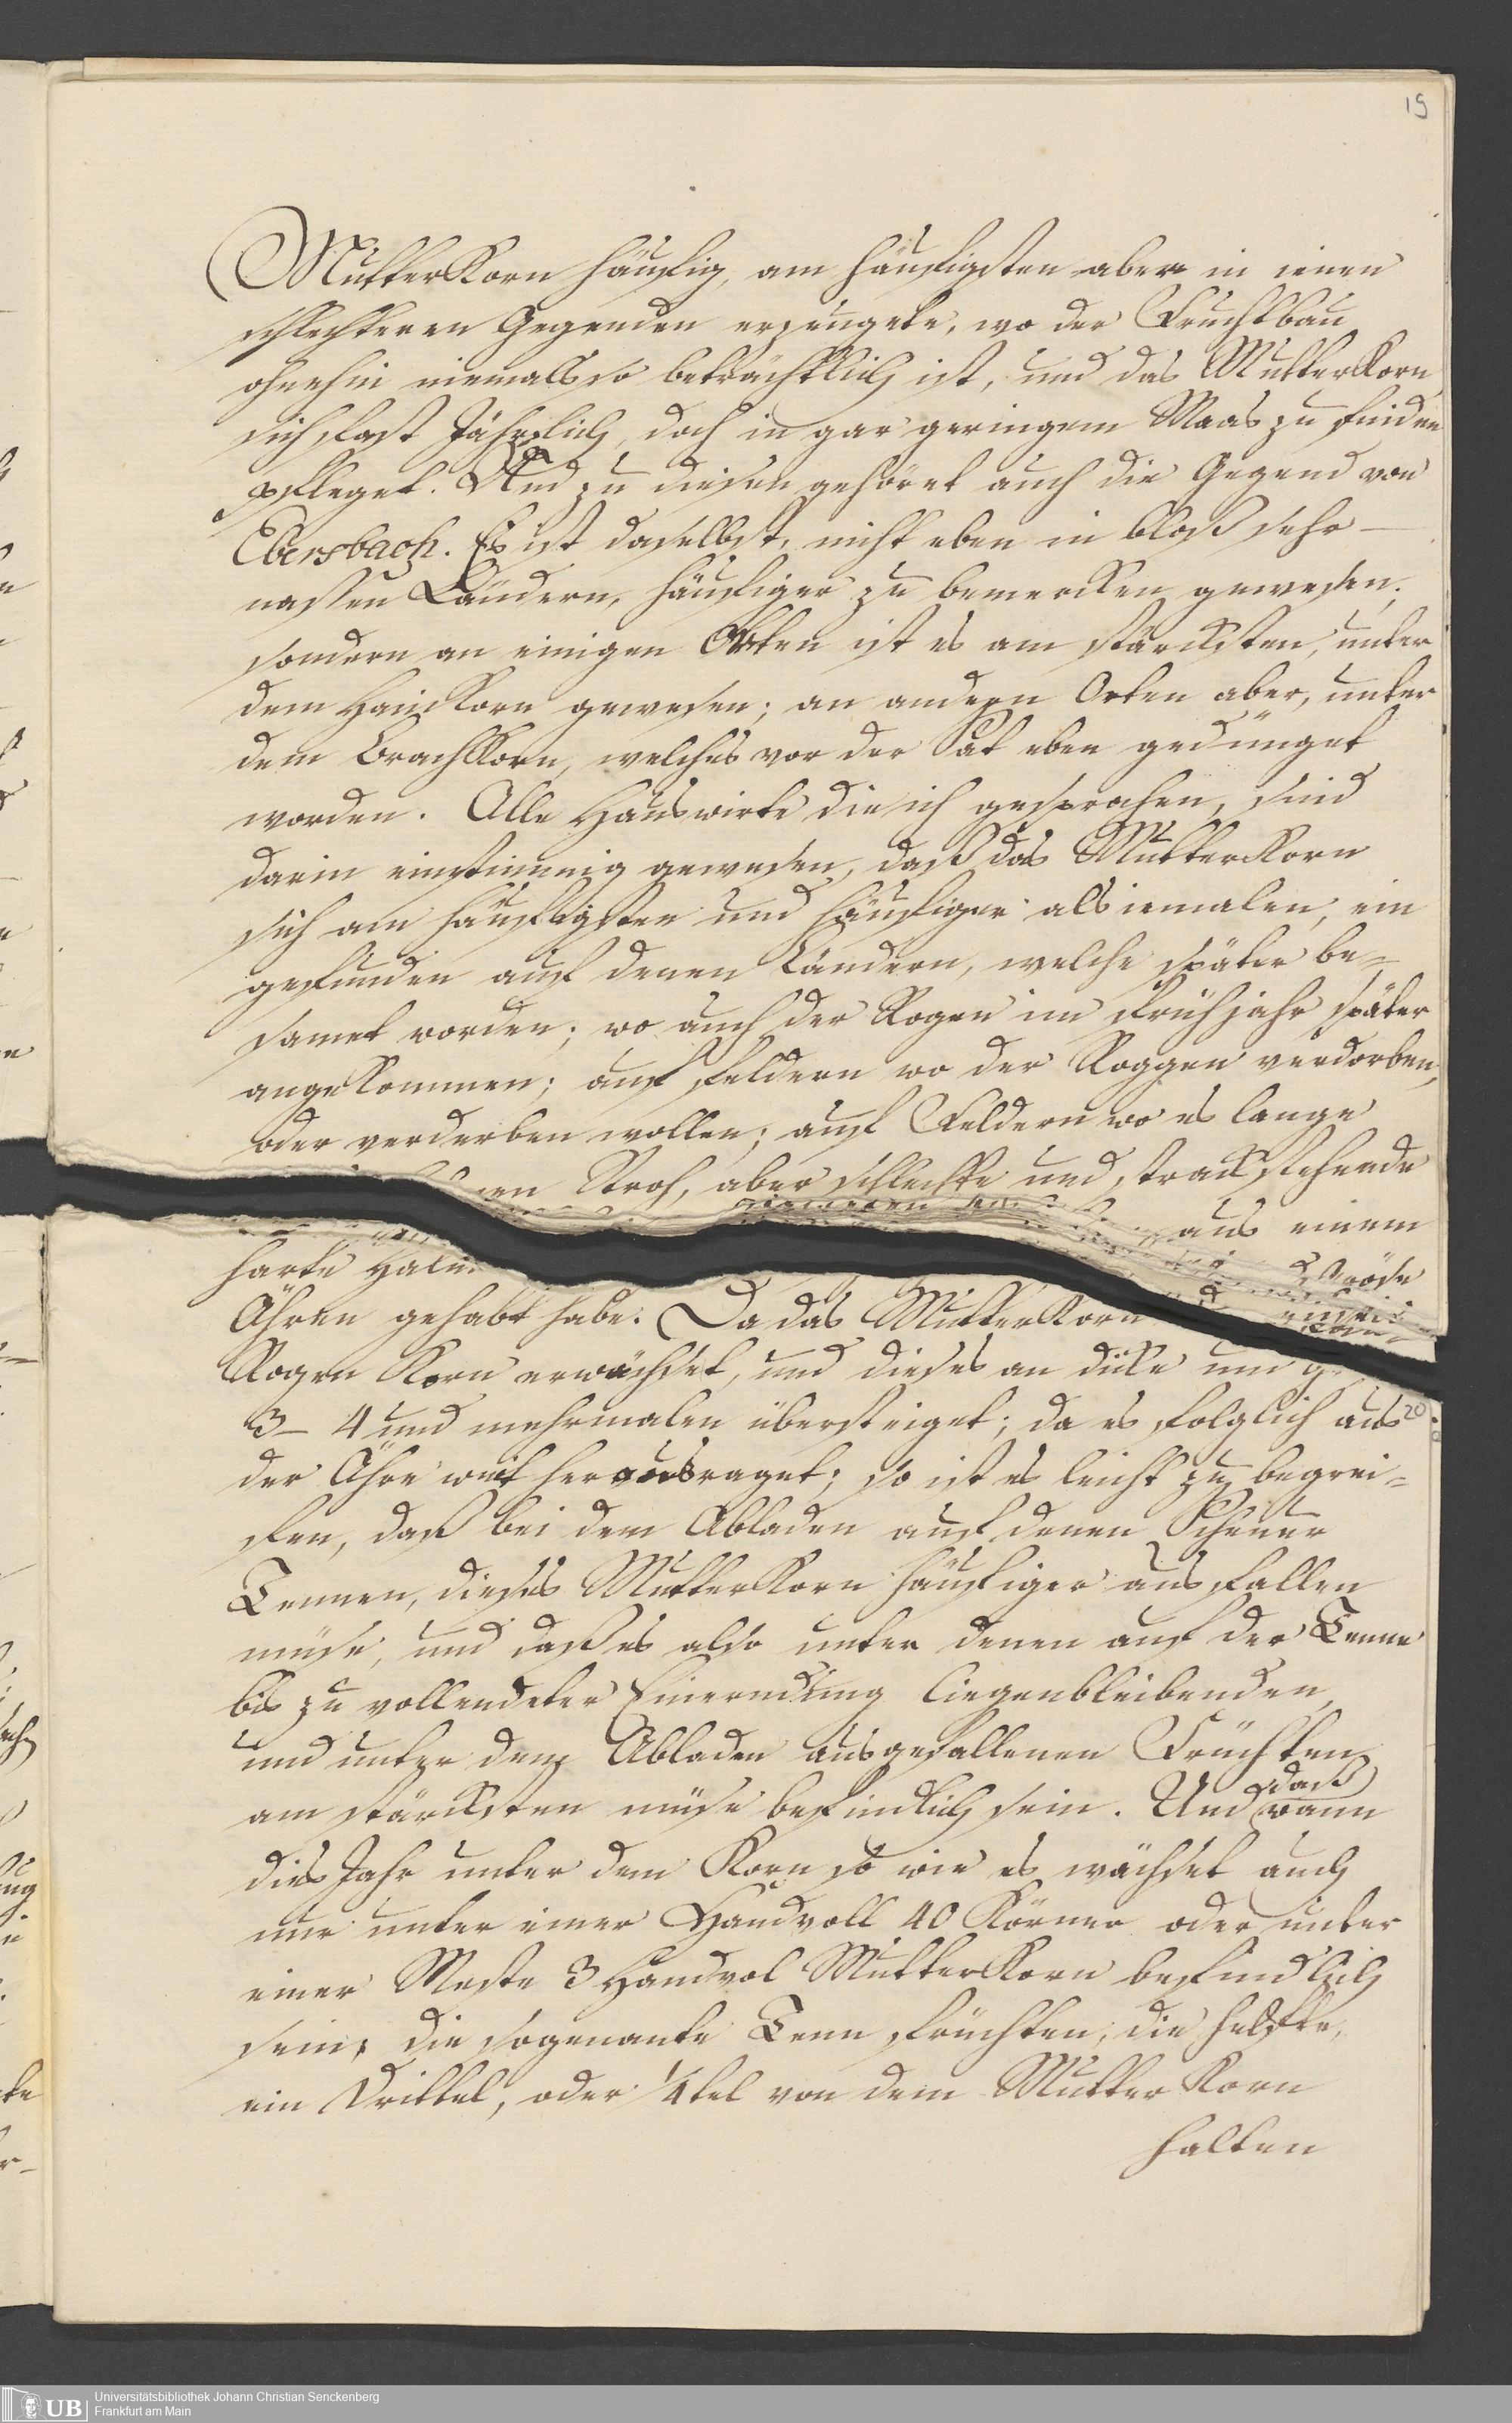 19
MutterKorn häufig, am häufigsten aber in ienen
schlechteren Gegenden erzeugete, wo der Fruchtbau
ohnehin niemals so beträchtlich ist, und das MutterKorn
sich fast Jährlich, doch in gar geringem Maas zu finden
pfleget. Und zu diesen gehöret auch die Gegend von
Ebersbach. Es ist daselbst, nicht eben in bloß sehr
nassen Ländern, häufiger zu bemercken gewesen;
sondern an einigen Orten ist es am stärcksten, unter
dem HainKorn gewesen; an andern Orten aber, unter
dem BrachKorn, welches vor der Sat eben gedünget
worden. Alle Hauswirte die ich gesprochen, sind
darin einstimmig gewesen, daß das MutterKorn
sich am häufigsten und häufiger als iemalen, ein
gefunden auf denen Ländern, welche später be=
samet worden; wo auch der Rogen im Frühjahr später
angekommen; auf Feldern wo der Roggen verdorben,
oder verderben wollen; auf Feldern wo es lange
Stroh, aber schlechte und strack stehende
aus einem
harte
Ähren gehabt habe. Da das MutterKorn
Rogen Korn erwächset, und dieses an dicke um
3 – 4 und mehrmalen übersteiget; da es folglich aus
20
der Ähre weit herausraget; so ist es leicht zu begrei=
fen, daß bei dem Abladen auf denen Scheuer
Tennen, dieses MutterKorn häufiger ausfallen
müse, und daß es also unter denen auf der Tenne
bis zu vollendeter Einerndung liegenbleibenden,
und unter dem Abladen ausgefallenen Früchten
am stärcksten müse befindlich sein. Und daß wann
dies Jahr unter dem Korn so wie es wächset auch
nur unter einer Handvoll 40 Körner oder unter
einer Meste 3 Handvol MutterKorn befindlich
sein, die sogenante Tenn Früchten, die helfte,
ein Drittel, oder 1/4tel von dem Mutter Korn
halten
Universitätsbibliothek Johann Christian Senckenberg
Frankfurt am Main
UB